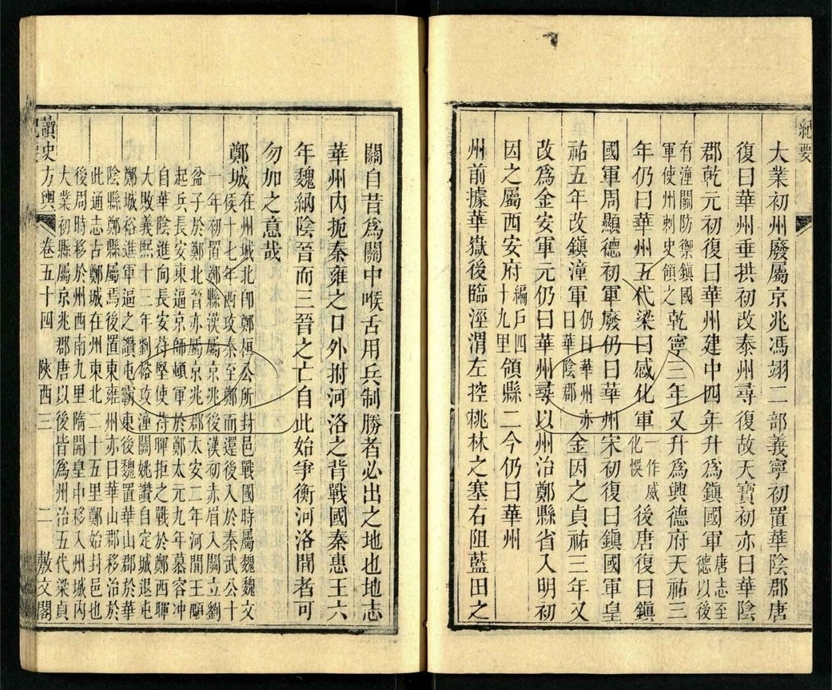 紀要
大業初州廢屬京兆馮翊二部義寧初置華陰郡唐
復曰華州垂拱初改泰州尋復故天寶初亦曰華陰
郡乾元初復曰華州建中四年升爲鎮國軍唐志至德以後
有潼關防禦鎮國軍使州刺史領之乾寧三年又升爲興德府天祐三
年仍曰華州五代梁曰感化軍一作威化悞後唐復曰鎮
國軍周顯德初軍廢仍曰華州宋初復曰鎮國軍皇
祐五年改鎮潼軍仍曰華州亦曰華陰郡金因之貞祐三年又
改爲金安軍元仍曰華州尋以州治鄭縣省入明初
因之屬西安府編戶四十九里領縣二今仍曰華州
州前據華嶽後臨涇渭左控桃林之塞右阻藍田之
關自昔爲關中喉舌用兵制勝者必出之地也地志
華州內扼秦雍之口外拊河洛之背戰國秦惠王六
年魏納陰晉而三晉之亡自此始爭衡河洛間者可
勿加之意哉
鄭城在州城北卽鄭桓公所封邑戰國時屬魏魏文
侯十七年西攻秦至鄭而還後入於秦武公十
一年初置鄭縣漢屬京兆後漢初赤眉入關立劉
盆子於鄭北晉亦屬京兆郡太安二年河間王顒
起兵長安東逼京師頓軍於鄭太元九年慕容冲
自華陰進向長安苻堅使苻暉拒之戰於鄭西暉
大敗義熙十三年劉裕攻潼關姚讚自定城退屯
鄭城裕進軍逼之讚屯霸東後魏置華山郡於華
陰縣鄭縣屬焉後置東雍州亦曰華山郡移治於
此通志古鄭城在州東北二十五里鄭始封邑也
後周時移於州西南九里隋開皇中移入州城內
大業初縣屬京兆郡唐以後皆爲州治五代梁貞
讀史方輿紀要
卷五十四
陝西三
二
敷文閣